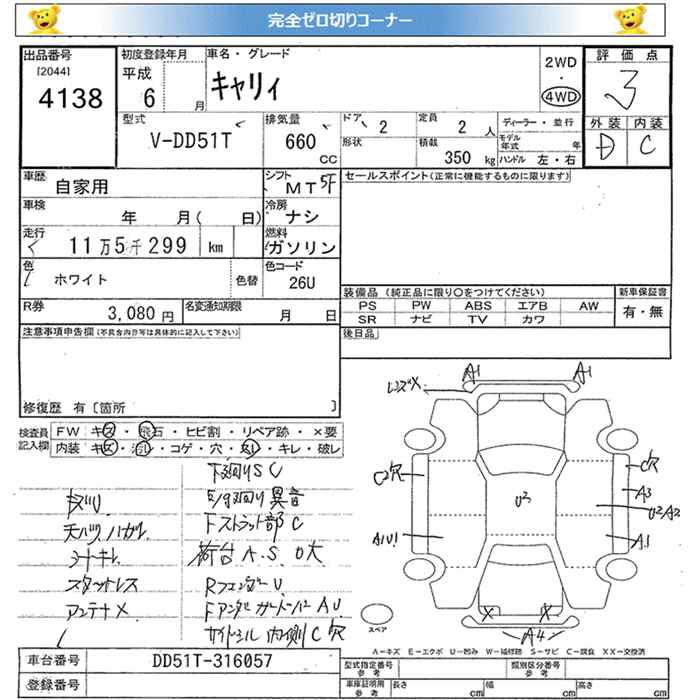 完全ゼロ切りコーナー
出品番号
[2044]
4138
初度登録年月
平成
6 月
車名・グレード
キャリィ
2WD
・
4WD
評価点
3
型式
V-DD51T
排気量
660
cc
ドア
2
定員
2 人
形状
積載
350 kg
ディーラー・並行
モデル年式 年
ハンドル 左・右
外装 内装
D C
車歴
自家用
シフト
MT 5F
セールスポイント(正常に機能するものに限ります)
車検
年 月( 日)
冷房
ナシ
走行
11万5千299 km
燃料
ガソリン
色
ホワイト
色替
色コード
26U
R券
3,080円
名変通知期限
月 日
装備品(純正品に限り〇をつけてください)
PS PW ABS エアB AW
SR ナビ TV カワ
新車保証書
有・無
後日品
注意事項申告欄(不具合内容等は具体的に記入して下さい)
修復歴 有〔箇所 〕
検査員記入欄
FW キズ・飛石・ヒビ割・リペア跡・×要
内装 キズ・汚レ・コゲ・穴・スレ・キレ・破レ
下廻りS C
E/g廻り異音
天バリハガレ
Fストラット部C
シートキレ
荷台A.S.U大
スタッドレス
RフェンダーU
アンテナX
サイドシル内側C穴
レンズX
A1
A1
C2穴
C穴
A3
U3
U2A2
A1U1
A1
X
X
A4
スペア
A-キズ E-エクボ U-凹み W-補修跡 S-サビ C-腐食 XX-交換済
車台番号
DD51T-316057
登録番号
型式指定番号
参考
類別区分番号
参考
車庫証明用
参考
長さ cm
幅 cm
高さ cm